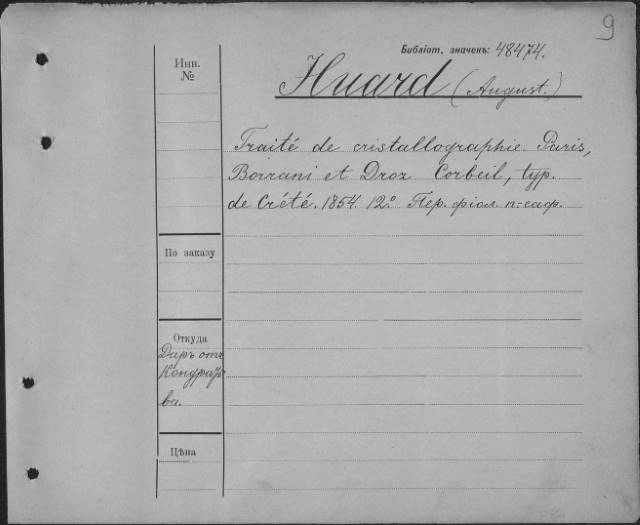 9
Библіот. значекъ 48474.
Инв.
№
Huard (August.)
Traité de cristallographie. Paris,
Borrani et Droz Corbeil, typ.
de Crété. 1854. 12º Пер. фіол. п.-саф.
По заказу
Откуда
Даръ отъ
Кондратьева.
Цѣна